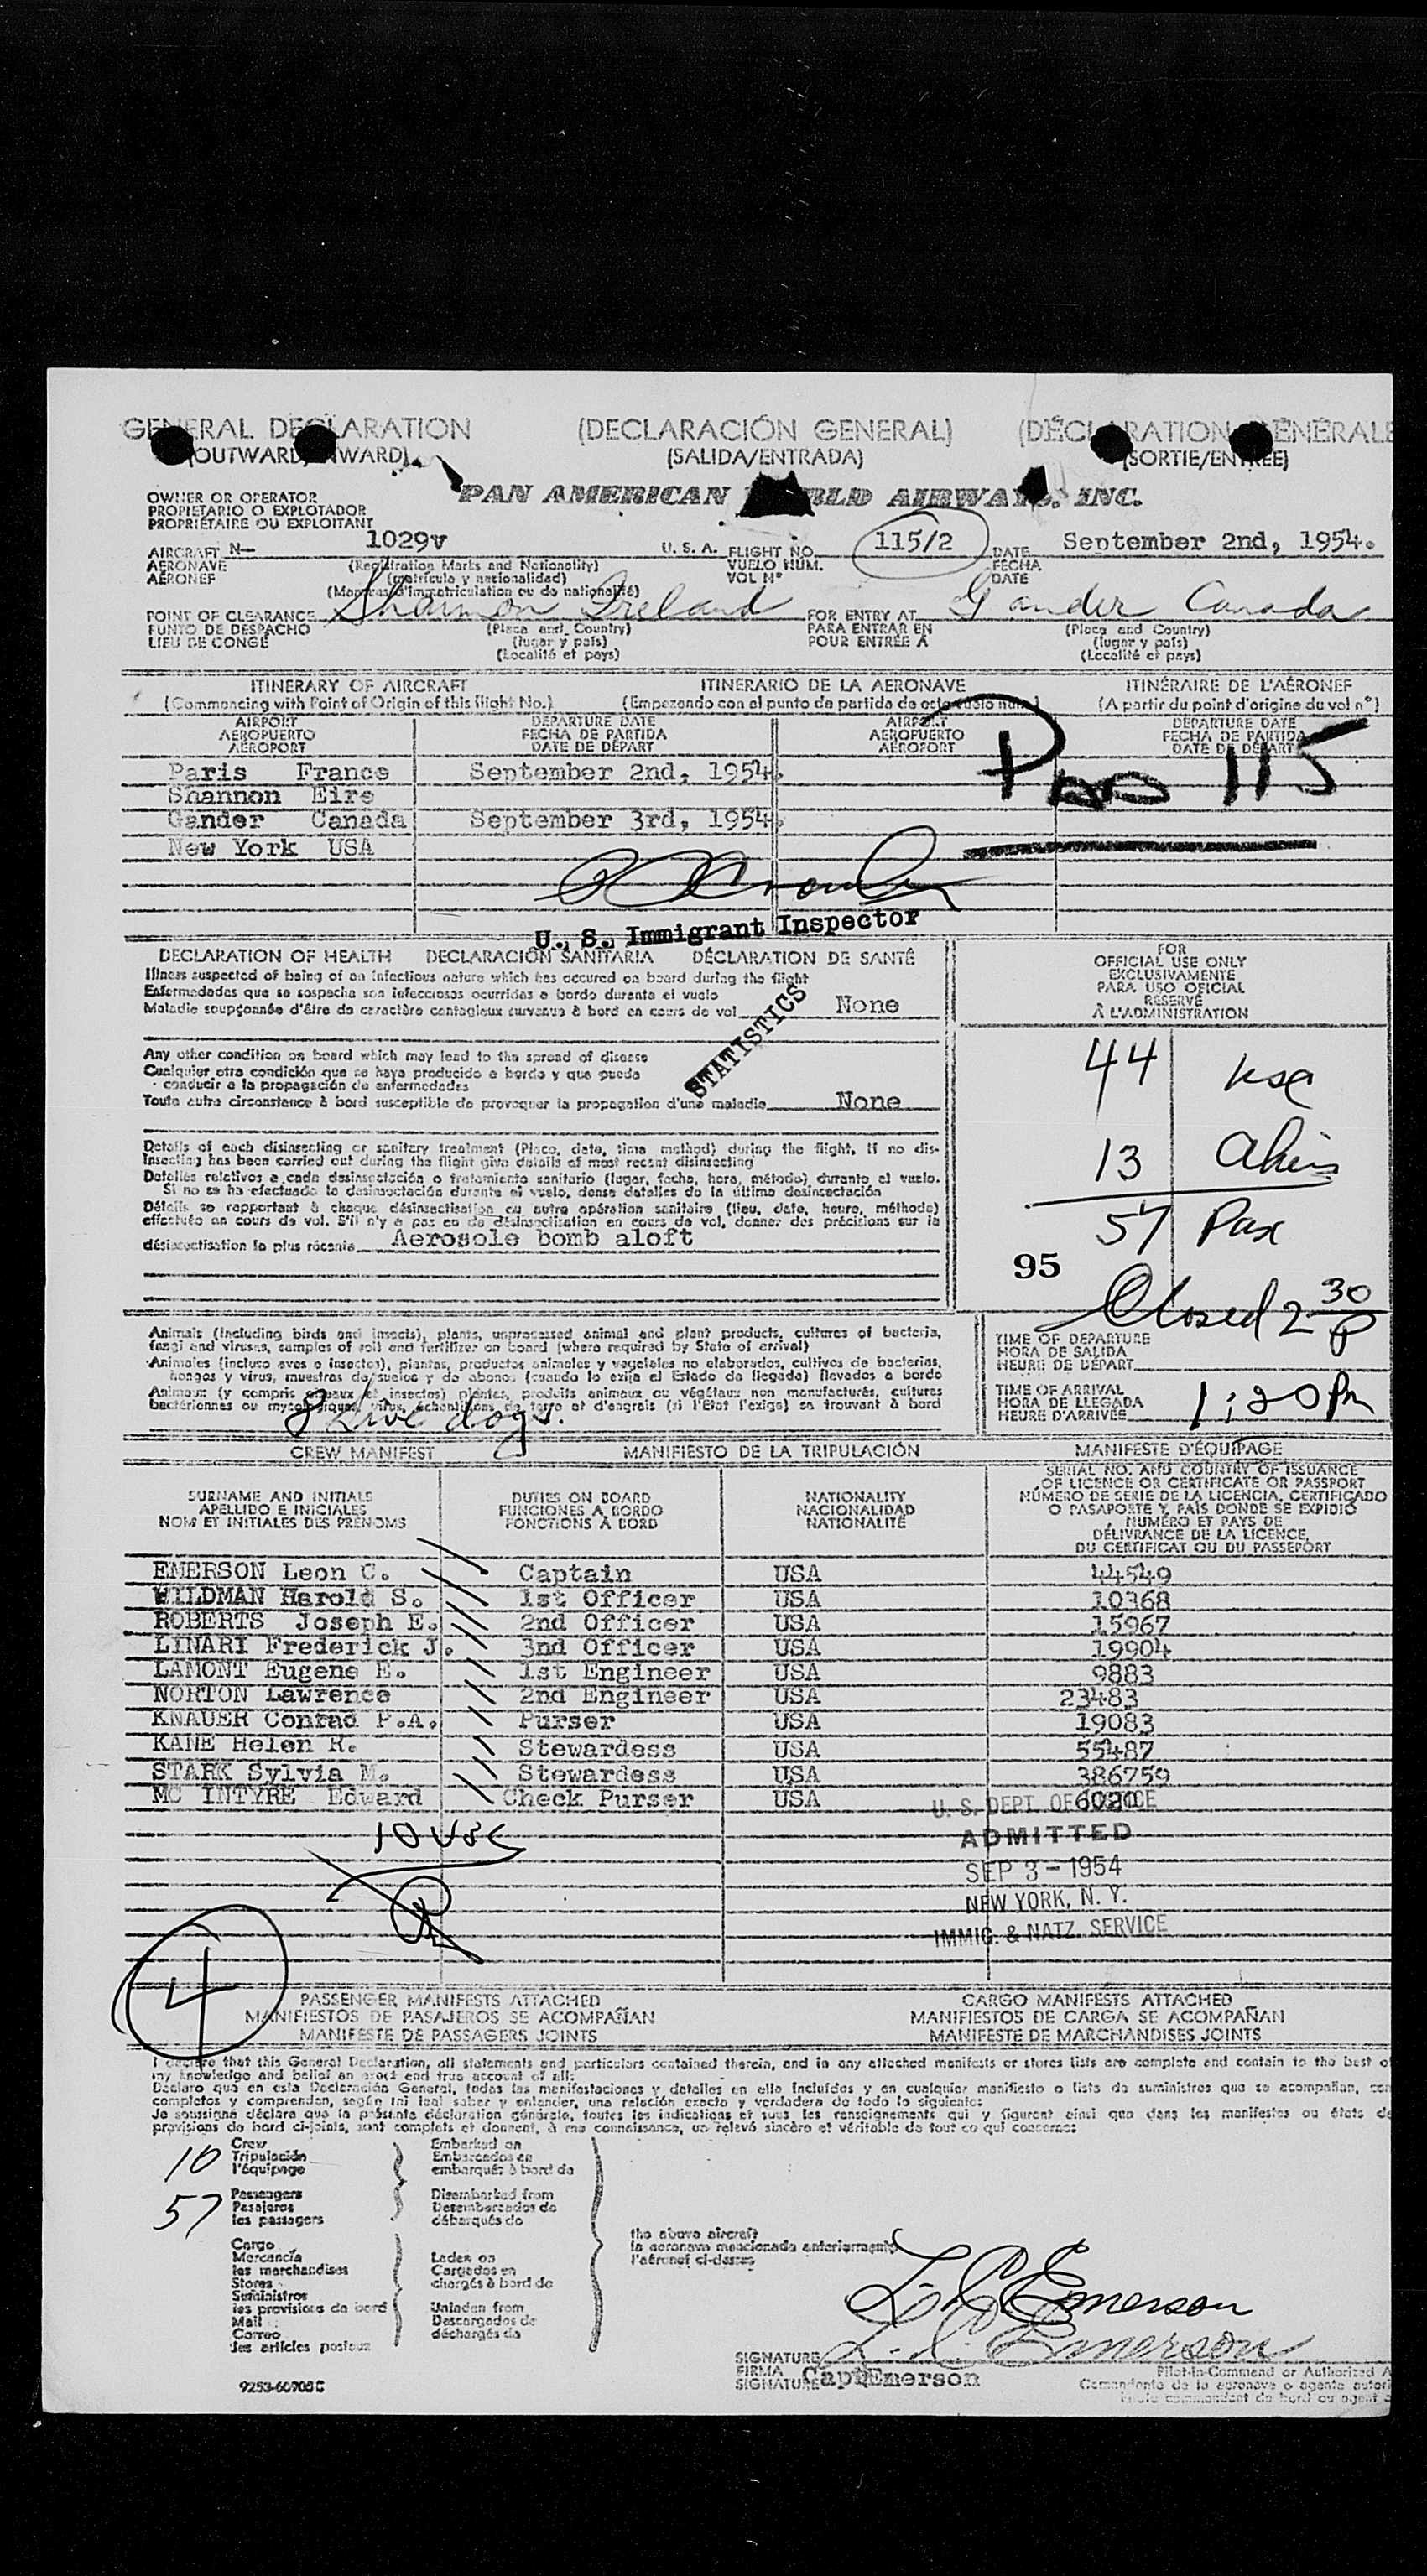 GENERAL DECLARATION (DECLARACIÓN GENERAL) (DÉCLARATION GÉNÉRALE
(OUTWARD/INWARD) (SALIDA/ENTRADA) (SORTIE/ENTRÉE)
PAN AMERICAN WORLD AIRWAYS, INC.
OWNER OR OPERATOR
PROPIETARIO O EXPLOTADOR
PROPRIÉTAIRE OU EXPLOITANT
AIRCRAFT N- 1029v U. S. A. FLIGHT NO. 115/2 DATE September 2nd, 1954.
AERONAVE (Registration Marks and Nationality) VUELO NUM. FECHA
AÉRONEF (matrícula y nacionalidad) VOL Nº DATE
(Marques d'immatriculation ou de nationalité)
POINT OF CLEARANCE Shannon Ireland FOR ENTRY AT Gander Canada
PUNTO DE DESPACHO (Place and Country) PARA ENTRAR EN (Place and Country)
LIEU DE CONGÉ (lugar y país) POUR ENTRÉE A (lugar y país)
(Localité et pays) (Localité et pays)
ITINERARY OF AIRCRAFT ITINERARIO DE LA AERONAVE ITINÉRAIRE DE L'AÉRONEF
(Commencing with Point of Origin of this flight No.) (Empezando con el punto de partida de este vuelo num.) (A partir du point d'origine du vol nº)
AIRPORT DEPARTURE DATE AIRPORT DEPARTURE DATE
AEROPUERTO FECHA DE PARTIDA AEROPUERTO FECHA DE PARTIDA
AÉROPORT DATE DE DÉPART AÉROPORT DATE DE DÉPART
Paris France September 2nd, 1954.
Shannon Eire
Gander Canada September 3rd, 1954.
New York USA
115
U. S. Immigrant Inspector
DECLARATION OF HEALTH DECLARACIÓN SANITARIA DÉCLARATION DE SANTÉ
Illness suspected of being of an infectious nature which has occured on board during the flight
Enfermedades que se sospecha son infecciosas ocurridas a bordo durante el vuelo
Maladie soupçonnée d'être de caractère contagieux survenue à bord en cours de vol None
STATISTICS
Any other condition on board which may lead to the spread of disease
Cualquier otra condición que se haya producido a bordo y que pueda
conducir a la propagación de enfermedades
Toute autre circonstance à bord susceptible de provoquer la propagation d'une maladie None
Details of each disinsecting or sanitary treatment (Place, date, time method) during the flight. If no dis-
insecting has been carried out during the flight give details of most recent disinsecting
Detalles relativos a cada desinsectación o tratamiento sanitario (lugar, fecha, hora, método) durante el vuelo.
Si no se ha efectuado la desinsectación durante el vuelo, dense detalles de la última desinsectación
Détails se rapportant à chaque désinsectisation ou autre opération sanitaire (lieu, date, heure, méthode)
effectuée en cours de vol. S'il n'y a pas eu de désinsectisation en cours de vol, donner des précisions sur la
désinsectisation la plus récente Aerosole bomb aloft
FOR
OFFICIAL USE ONLY
EXCLUSIVAMENTE
PARA USO OFICIAL
RÉSERVÉ
À L'ADMINISTRATION
44 usa
13 Aliens
57 Pax
95
Closed 2 30 P
Animals (including birds and insects), plants, unprocessed animal and plant products, cultures of bacteria,
fungi and viruses, samples of soil and fertilizer on board (where required by State of arrival)
Animales (incluso aves o insectos), plantas, productos animales y vegetales no elaborados, cultivos de bacterias,
hongos y virus, muestras de suelos y de abonos (cuando lo exija el Estado de llegada) llevados a bordo
Animaux (y compris oiseaux et insectes) plantes, produits animaux ou végétaux non manufacturés, cultures
bactériennes ou mycologiques, virus, échantillons de terre et d'engrais (si l'État l'exige) se trouvant à bord
live dogs.
TIME OF DEPARTURE
HORA DE SALIDA
HEURE DE DÉPART
TIME OF ARRIVAL
HORA DE LLEGADA
HEURE D'ARRIVÉE 1:20 Pm
CREW MANIFEST MANIFIESTO DE LA TRIPULACIÓN MANIFESTE D'ÉQUIPAGE
SURNAME AND INITIALS DUTIES ON BOARD NATIONALITY SERIAL NO. AND COUNTRY OF ISSUANCE
APELLIDO E INICIALES FUNCIONES A BORDO NACIONALIDAD OF LICENCE OR CERTIFICATE OR PASSPORT
NOM ET INITIALES DES PRÉNOMS FONCTIONS À BORD NATIONALITÉ NÚMERO DE SERIE DE LA LICENCIA, CERTIFICADO
O PASAPORTE Y PAÍS DONDE SE EXPIDIÓ
NUMÉRO ET PAYS DE
DÉLIVRANCE DE LA LICENCE,
DU CERTIFICAT OU DU PASSEPORT
EMERSON Leon C. Captain USA 44549
WILDMAN Harold S. 1st Officer USA 10368
ROBERTS Joseph E. 2nd Officer USA 15967
LINARI Frederick J. 3nd Officer USA 19904
LAMONT Eugene E. 1st Engineer USA 9883
NORTON Lawrence 2nd Engineer USA 23483
KNAUER Conrad P.A. Purser USA 19083
KANE Helen R. Stewardess USA 55487
STARK Sylvia M. Stewardess USA 386759
MC INTYRE Edward Check Purser USA 6020
U. S. DEPT. OF JUSTICE
10 USC
ADMITTED
SEP 3 - 1954
NEW YORK, N. Y.
IMMIG. & NATZ. SERVICE
4
PASSENGER MANIFESTS ATTACHED CARGO MANIFESTS ATTACHED
MANIFIESTOS DE PASAJEROS SE ACOMPAÑAN MANIFIESTOS DE CARGA SE ACOMPAÑAN
MANIFESTE DE PASSAGERS JOINTS MANIFESTE DE MARCHANDISES JOINTS
I declare that this General Declaration, all statements and particulars contained therein, and in any attached manifests or stores lists are complete and contain to the best of
my knowledge and belief an exact and true account of all:
Declaro que en esta Declaración General, todas las manifestaciones y detalles en ella incluidos y en cualquier manifiesto o lista de suministros que se acompañan, son
completos y comprenden, según mi leal saber y entender, una relación exacta y verdadera de todo lo siguiente:
Je soussigné déclare que la présente déclaration générale, toutes les indications et tous les renseignements qui y figurent ainsi que dans les manifestes ou états de
provisions de bord ci-joints, sont complets et donnent, à ma connaissance, un relevé sincère et véritable de tout ce qui concerne:
10 Crew Embarked on
Tripulación Embarcados en
l'équipage embarqués à bord de
57 Passengers Disembarked from
Pasajeros Desembarcados de
les passagers débarqués de
the above aircraft
la aeronave mencionada anteriormente
l'aéronef ci-dessus
Cargo
Mercancía Laden on
les marchandises Cargados en
Stores chargés à bord de
Suministros
les provisions de bord Unladen from
Mail Descargados de
Correo déchargés de
les articles postaux
L. C. Emerson
L. C. Emerson
SIGNATURE
FIRMA Capt Emerson
SIGNATURE
Pilot-in-Command or Authorized A
Comandante de la aeronave o agente autori
Pilote commandant de bord ou agent a
9253-60705C